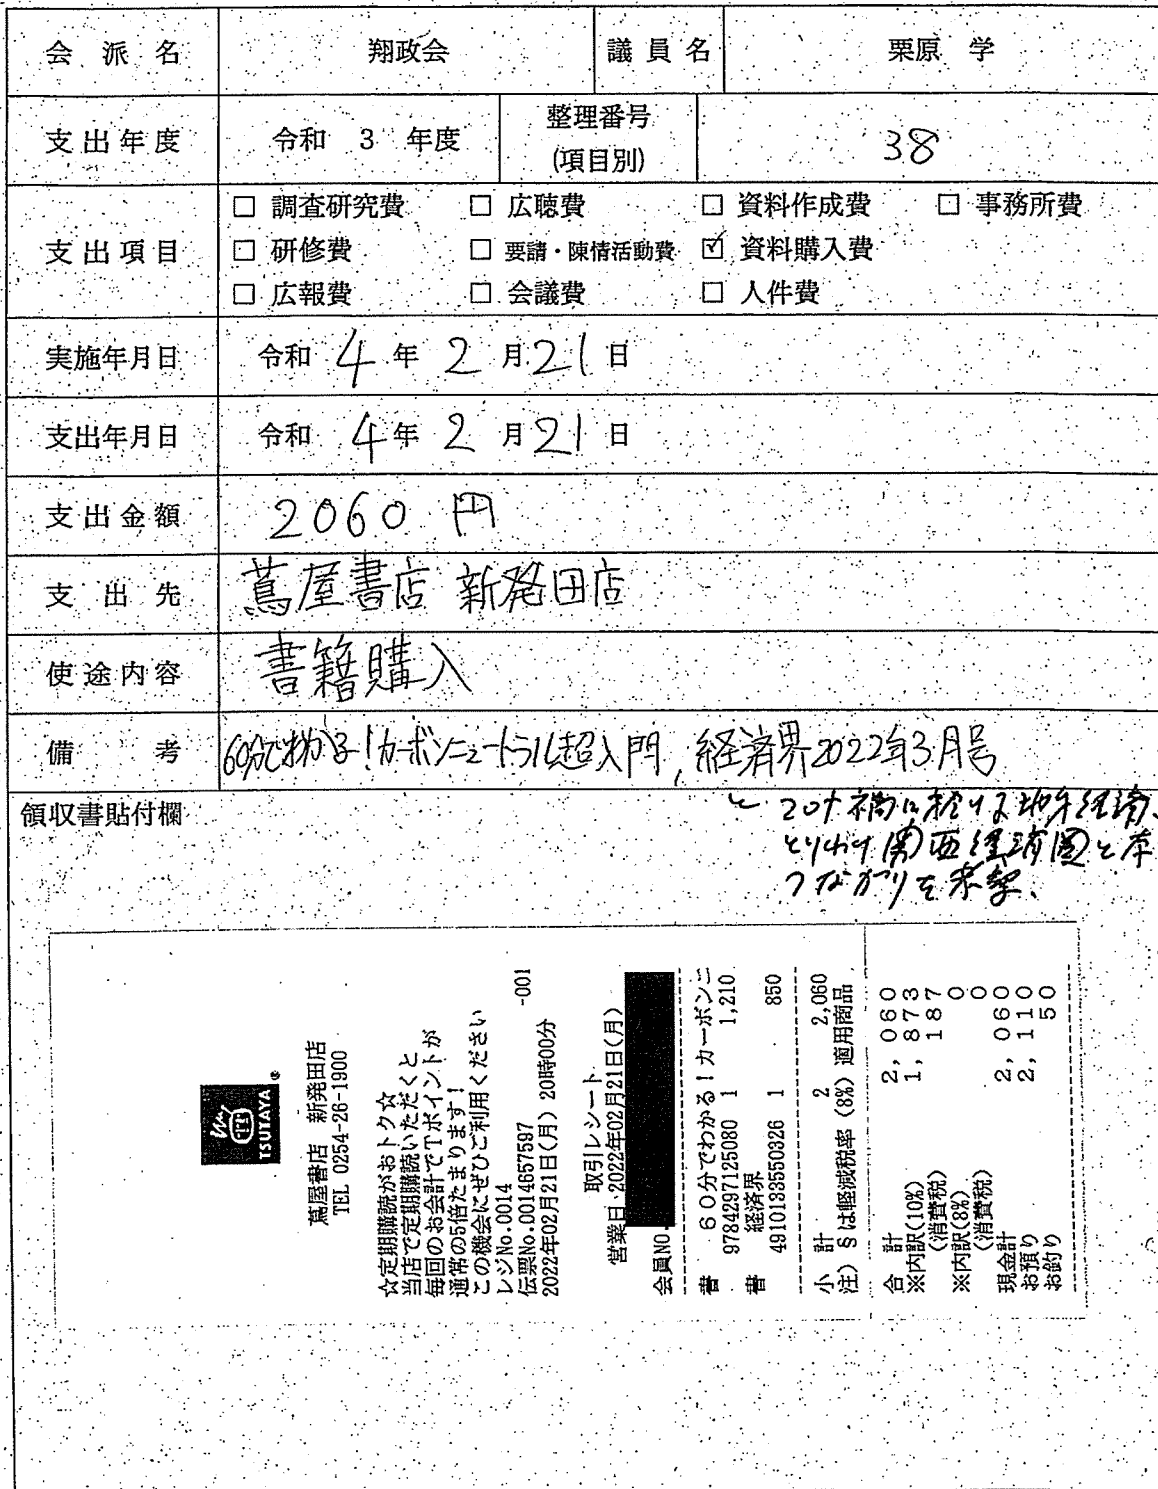 会派名 翔政会 議員名 栗原 学
支出年度 令和 3 年度 整理番号(項目別) 38
支出項目
□ 調査研究費 □ 広聴費 □ 資料作成費 □ 事務所費
□ 研修費 □ 要請・陳情活動費 ☑ 資料購入費
□ 広報費 □ 会議費 □ 人件費
実施年月日 令和 4 年 2 月 21 日
支出年月日 令和 4 年 2 月 21 日
支出金額 2060 円
支出先 蔦屋書店 新発田店
使途内容 書籍購入
備考 60分でわかる!カーボンニュートラル超入門, 経済界2022年3月号
領収書貼付欄
コロナ禍に於ける地年経済、
とりわけ関西経済圏と本
つながりを
TSUTAYA ®
蔦屋書店 新発田店
TEL 0254-26-1900
☆定期購読がおトク☆
当店で定期購読いただくと
毎回のお会計でTポイントが
通常の5倍たまります!
この機会にぜひご利用ください
レジNo.0014 -001
伝票No.0014657597
2022年02月21日(月) 20時00分
取引レシート
営業日:2022年02月21日(月)
会員NO.
書 60分でわかる!カーボンニ
9784297125080 1 1,210
書 経済界
4910133550326 1 850
小 計 2 2,060
注) §は軽減税率 (8%) 適用商品
合 計 2,060
※内訳(10%) 1,873
(消費税) 187
※内訳(8%) 0
(消費税) 0
現金計 2,060
お預り 2,110
お釣り 50